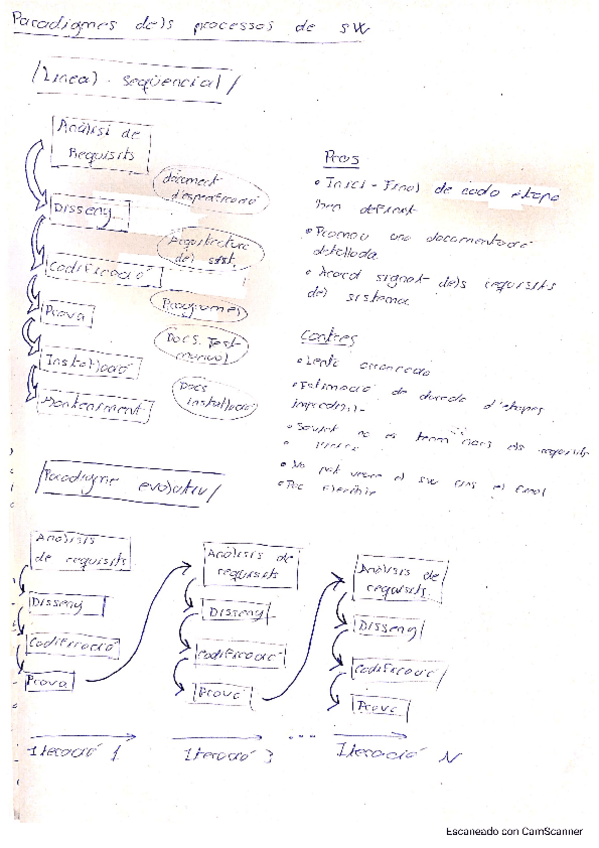 Paradigmes dels processos de SW
/Lineal. seqüencial/
Anàlisi de
Requisits
document
d'especificació
Disseny
Arquitectura
del sist.
Codificació
Programes
Prova
Docs. Test
manual
Instal·lació
Docs
instal·lació
Manteniment
Pros
• Inici - Final de cada etapa
ben definit
• Promou una documentació
detallada
• Acord signat dels requisits
del sistema
Contres
• Lenta
• Estimació de durada d'etapes
• Sovint no es els requisits
• No pot veure el SW fins el final
• Poc flexible
/Paradigma evolutiu/
Anàlisis
de requisits
Disseny
Codificació
Prova
Iteració 1
Anàlisis de
requisits
Disseny
Codificació
Prova
Iteració 3
...
Anàlisis de
requisits
Disseny
Codificació
Prova
Iteració N
Escaneado con CamScanner